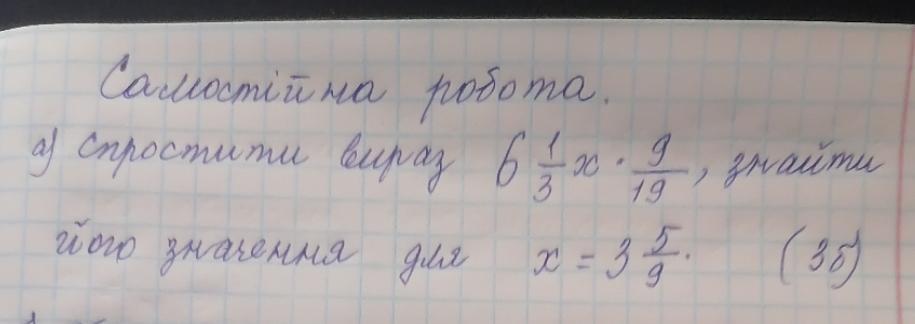 Самостійна робота.
а) спростити вираз 6 1/3 x · 9/19, знайти
його значення для x = 3 5/9. (3б)